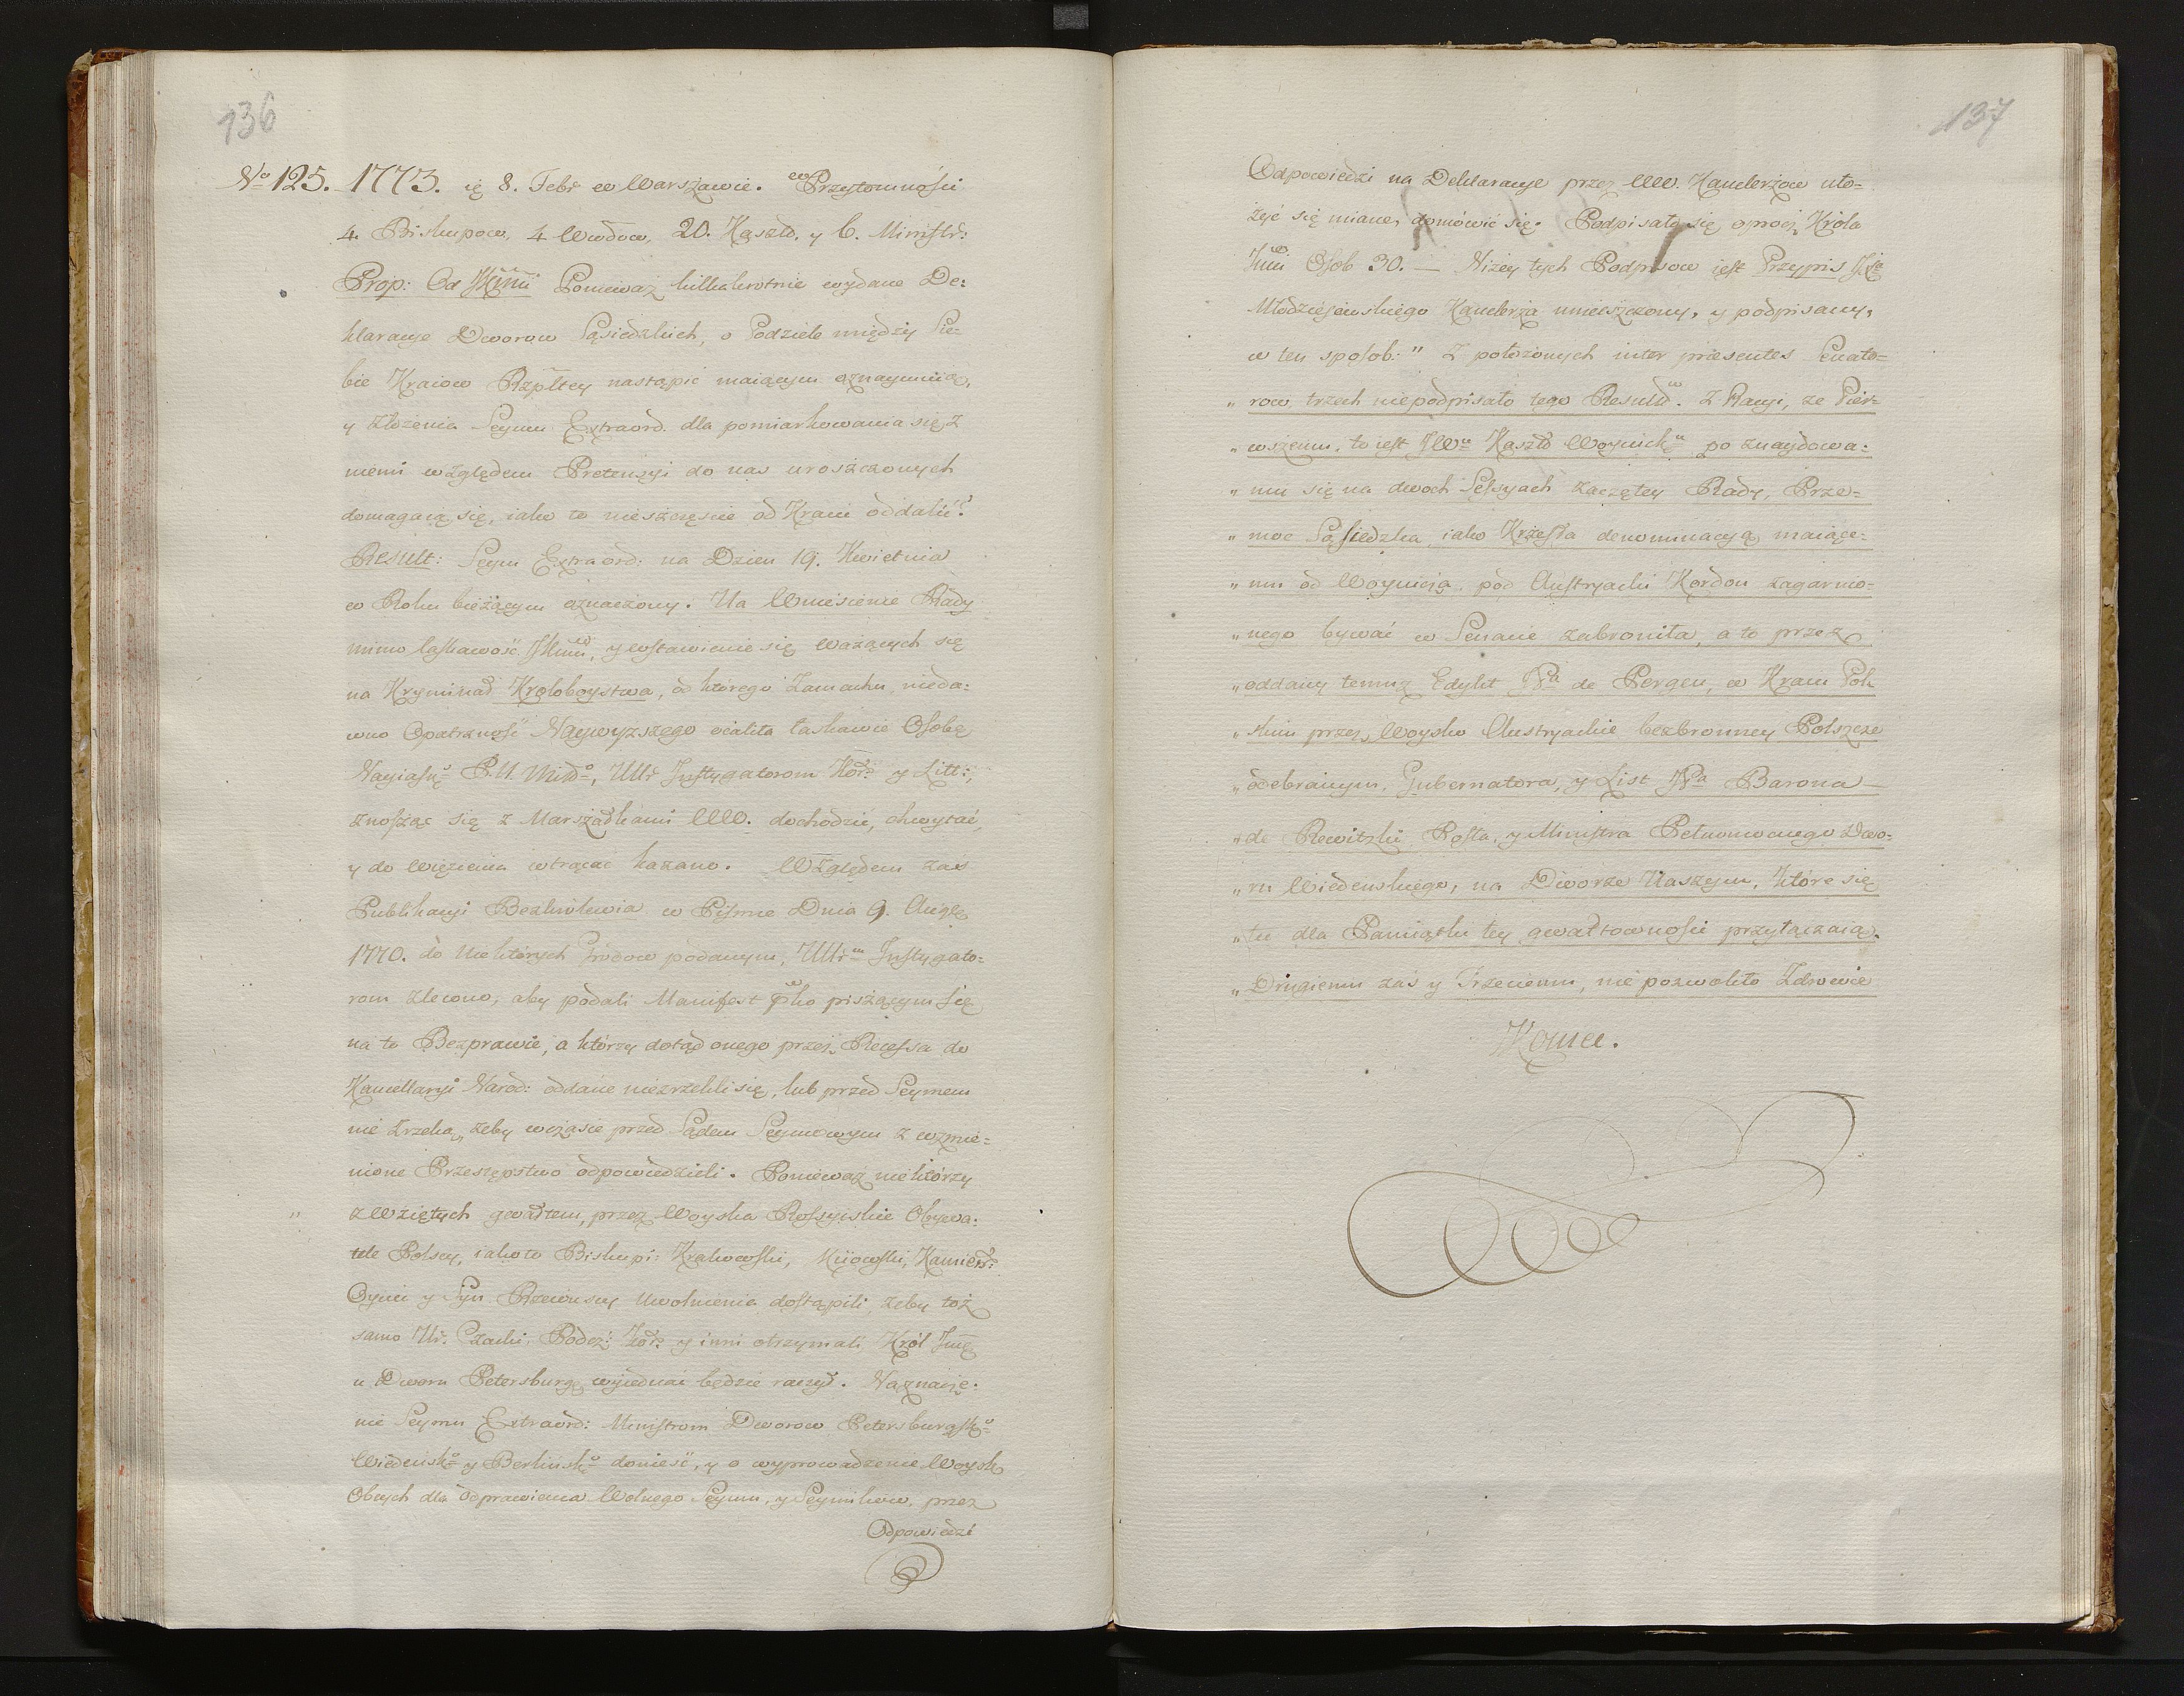 136
No 125. 1773. ię 8. Febr w Warszawie. w Przytomności
4. Biskupow, 4 Wwdow, 20. Kasztd. y 6. Ministr:
Prop: Od JKMci Poniewaz kilkakrotnie wydane De:
klaracye Dworow Sąsiedzkich, o Podziele między Sie=
bie Kraiow Rzpltey nastąpić maiącym oznaymuią,
y złożenia Seymu Extraord. dla pomiarkowania się z
niemi względem Pretensyi do nas uroszczonych
domagaią się, iako to nieszczęscie od Kraiu oddalić?
Result: Seym Extraord: na Dzien 19. Kwietnia
w Roku bieżącym oznaczony. Na Wniesienie Rady
mimo łaskawość JKMci, y wstawienie się ważących się
na Kryminał Kroloboystwa, od którego Zamachu nieda:
wno Opatrzność Naywyzszego ocaliła łaskawie Osobę
Nayiasno P. N. Miło, UUr Instygatorom Kor: y Litt:,
znosząc się z Marszałkami WW. dochodzić, chwytać,
y do więzienia wtrącać kazano. Względem zas
Publikacyi Bezkrolewia w Pismie Dnia 9. Aug
1770. do niektórych Grodow podanym, UUrm Instygato=
rom zlecono, aby podali Manifest pko piszącym się
na to Bezprawie, a którzy dotąd onego przez Recessa do
Kancellaryi Narod: oddane niezrzekli się, lub przed Seymem
nie zrzeką, żeby wczasie przed Sądem Seymowym z wzmie=
nione Przestępstwo odpowiedzieli. Poniewaz niektórzy
z Wziętych gwałtem, przez Woyska Rossyiskie Obywa:
tele Polscy, iako to Biskupi: Krakowski, Kiiowski, Kamień:
Oyciec y Syn Rzewuscy Uwolnienia dostąpili, żeby toż
samo Ur. Czacki, Podcz: Kor: y inni otrzymali, Król Jmć
u Dworu Petersburg wyiednać będzie raczył. Naznacze.
nie Seymu Extraord: Ministrom Dworow Petersburgsko
Wiedeńsko y Berlińsko donieść, y o wyprowadzenie Woysk
Obcych dla odprawienia Wolnego Seymu, y Seymikow, przez
Odpowiedzi
137
Odpowiedzi na Deklaracye przez WW. Kanclerzow uło=
żyć się miane, domówić się. Podpisało się oprocz Króla
Jmci Osob 30. — Niżey tych Podpisow iest Przypis JX
Młodzieiowskiego Kanclerza umieszczony, y podpisany,
w ten sposob: " Z położonych inter præsentes Senato=
„ row, trzech niepodpisało tego Resultu. Z Racyi, ze Pier=
„ wszemu, to iest JWu Kasztd Woynicku po znaydowa:
„ niu się na dwoch Sessyach zaczętey Rady, Prze=
„ moc Sąsiedzka, iako Krzesła denominacyą maiące:
„ mu od Woynicza pod Austryacki Kordon zagarnio=
„ nego bywać w Senacie zabroniła, a to przez
„ oddany temuz Edykt JPa de Pergen, w Kraiu Pol
„ skim przez Woysko Austryackie bezbronney Polszcze
„ odebranym, Gubernatora, y List JPa Barona —
„ de Rewitzki Posła, y Ministra Pełnomocnego Dwo=
„ ru Wiedenskiego, na Dworze Naszym, które się
„ tu dla Pamiątki tey gwałtowności przytaczaią.
„ Drugiemu zaś y Trzeciemu, nie pozwoliło Zdrowie
Koniec.